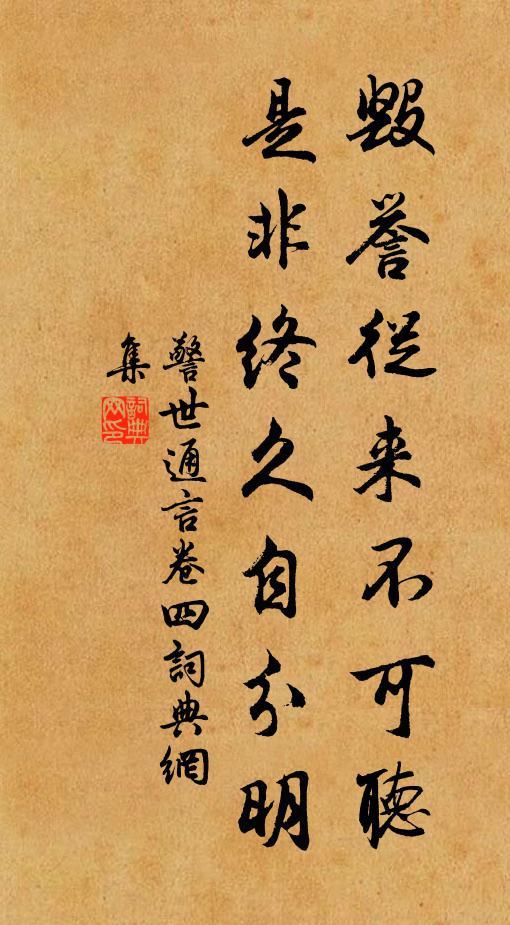 毀譽從来不可聽
是非終久自分明
警世通言卷四詞典網
集
詞典
网印